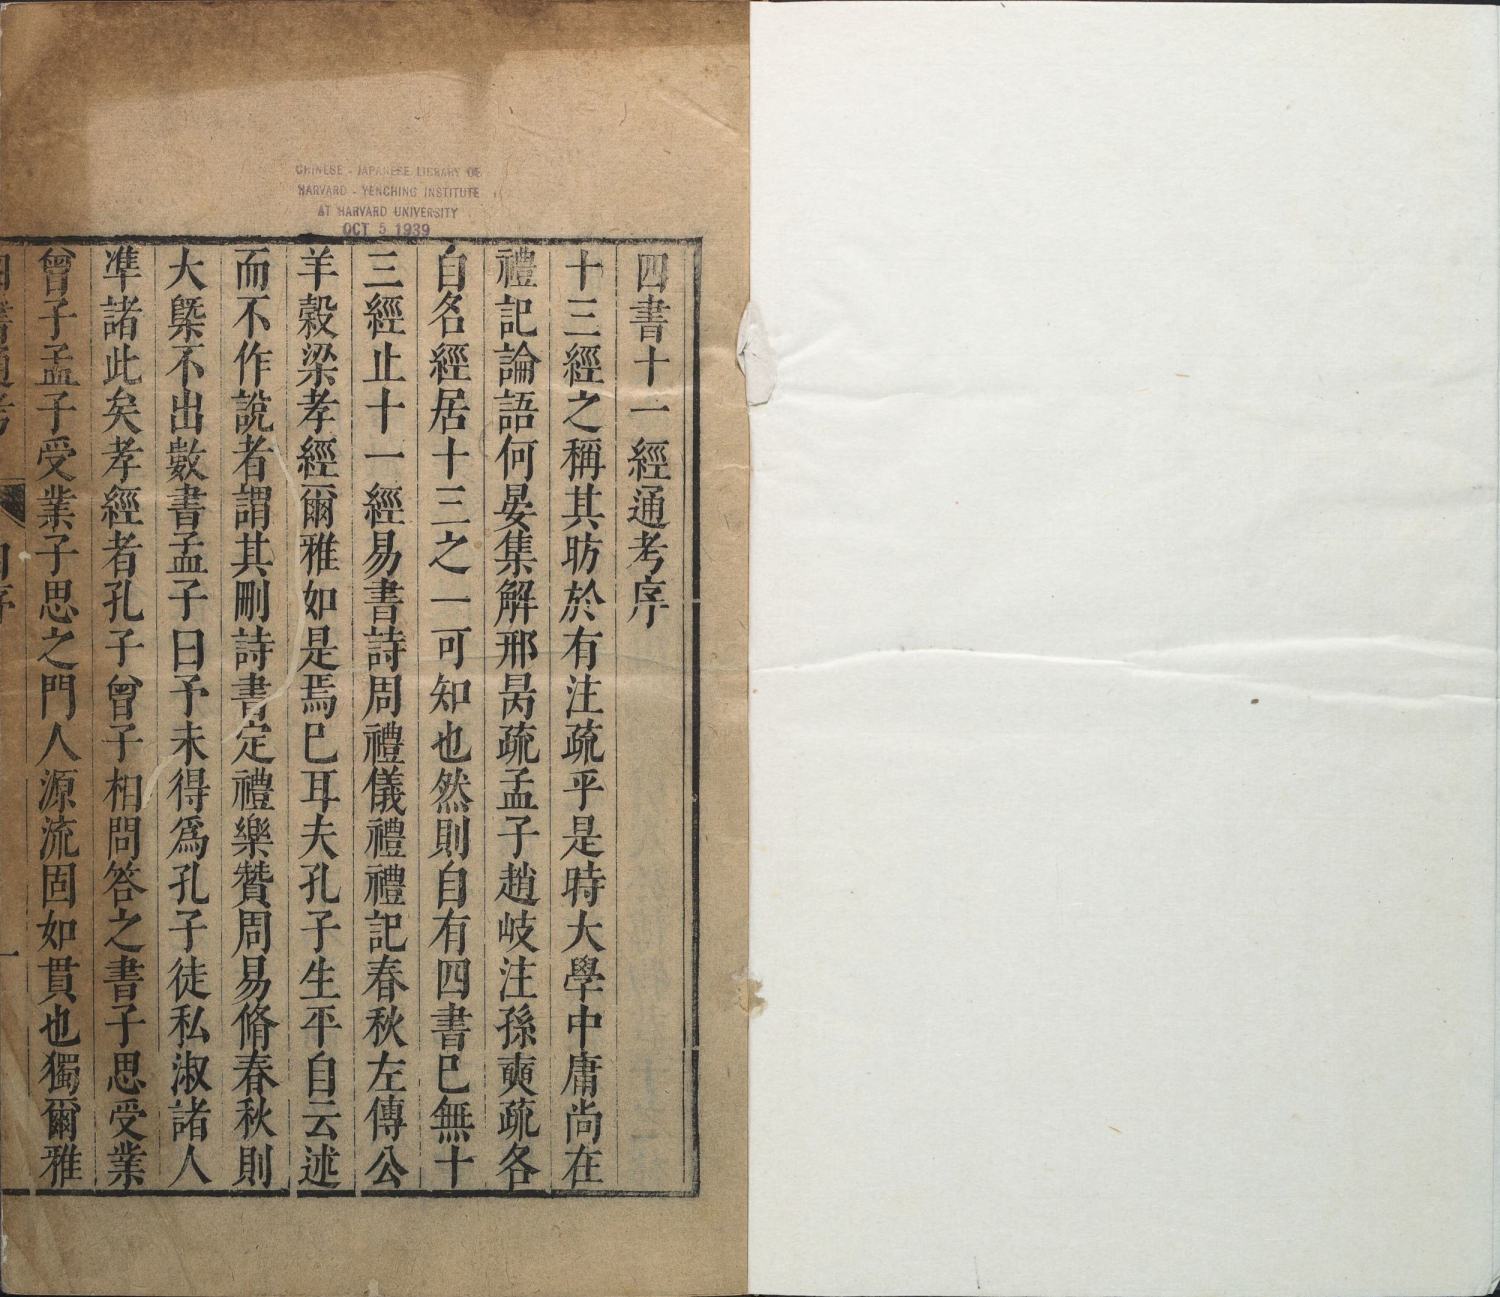 CHINESE - JAPANESE LIBRARY OF
HARVARD - YENCHING INSTITUTE
AT HARVARD UNIVERSITY
OCT 5 1939
四書十一經通考序
十三經之稱其昉於有注疏乎是時大學中庸尚在
禮記論語何晏集解邢昺疏孟子趙岐注孫奭疏各
自名經居十三之一可知也然則自有四書已無十
三經止十一經易書詩周禮儀禮禮記春秋左傳公
羊穀梁孝經爾雅如是焉已耳夫孔子生平自云述
而不作說者謂其刪詩書定禮樂贊周易脩春秋則
大槩不出數書孟子曰予未得爲孔子徒私淑諸人
準諸此矣孝經者孔子曾子相問答之書子思受業
曾子孟子受業子思之門人源流固如貫也獨爾雅
四書通考 自序 一